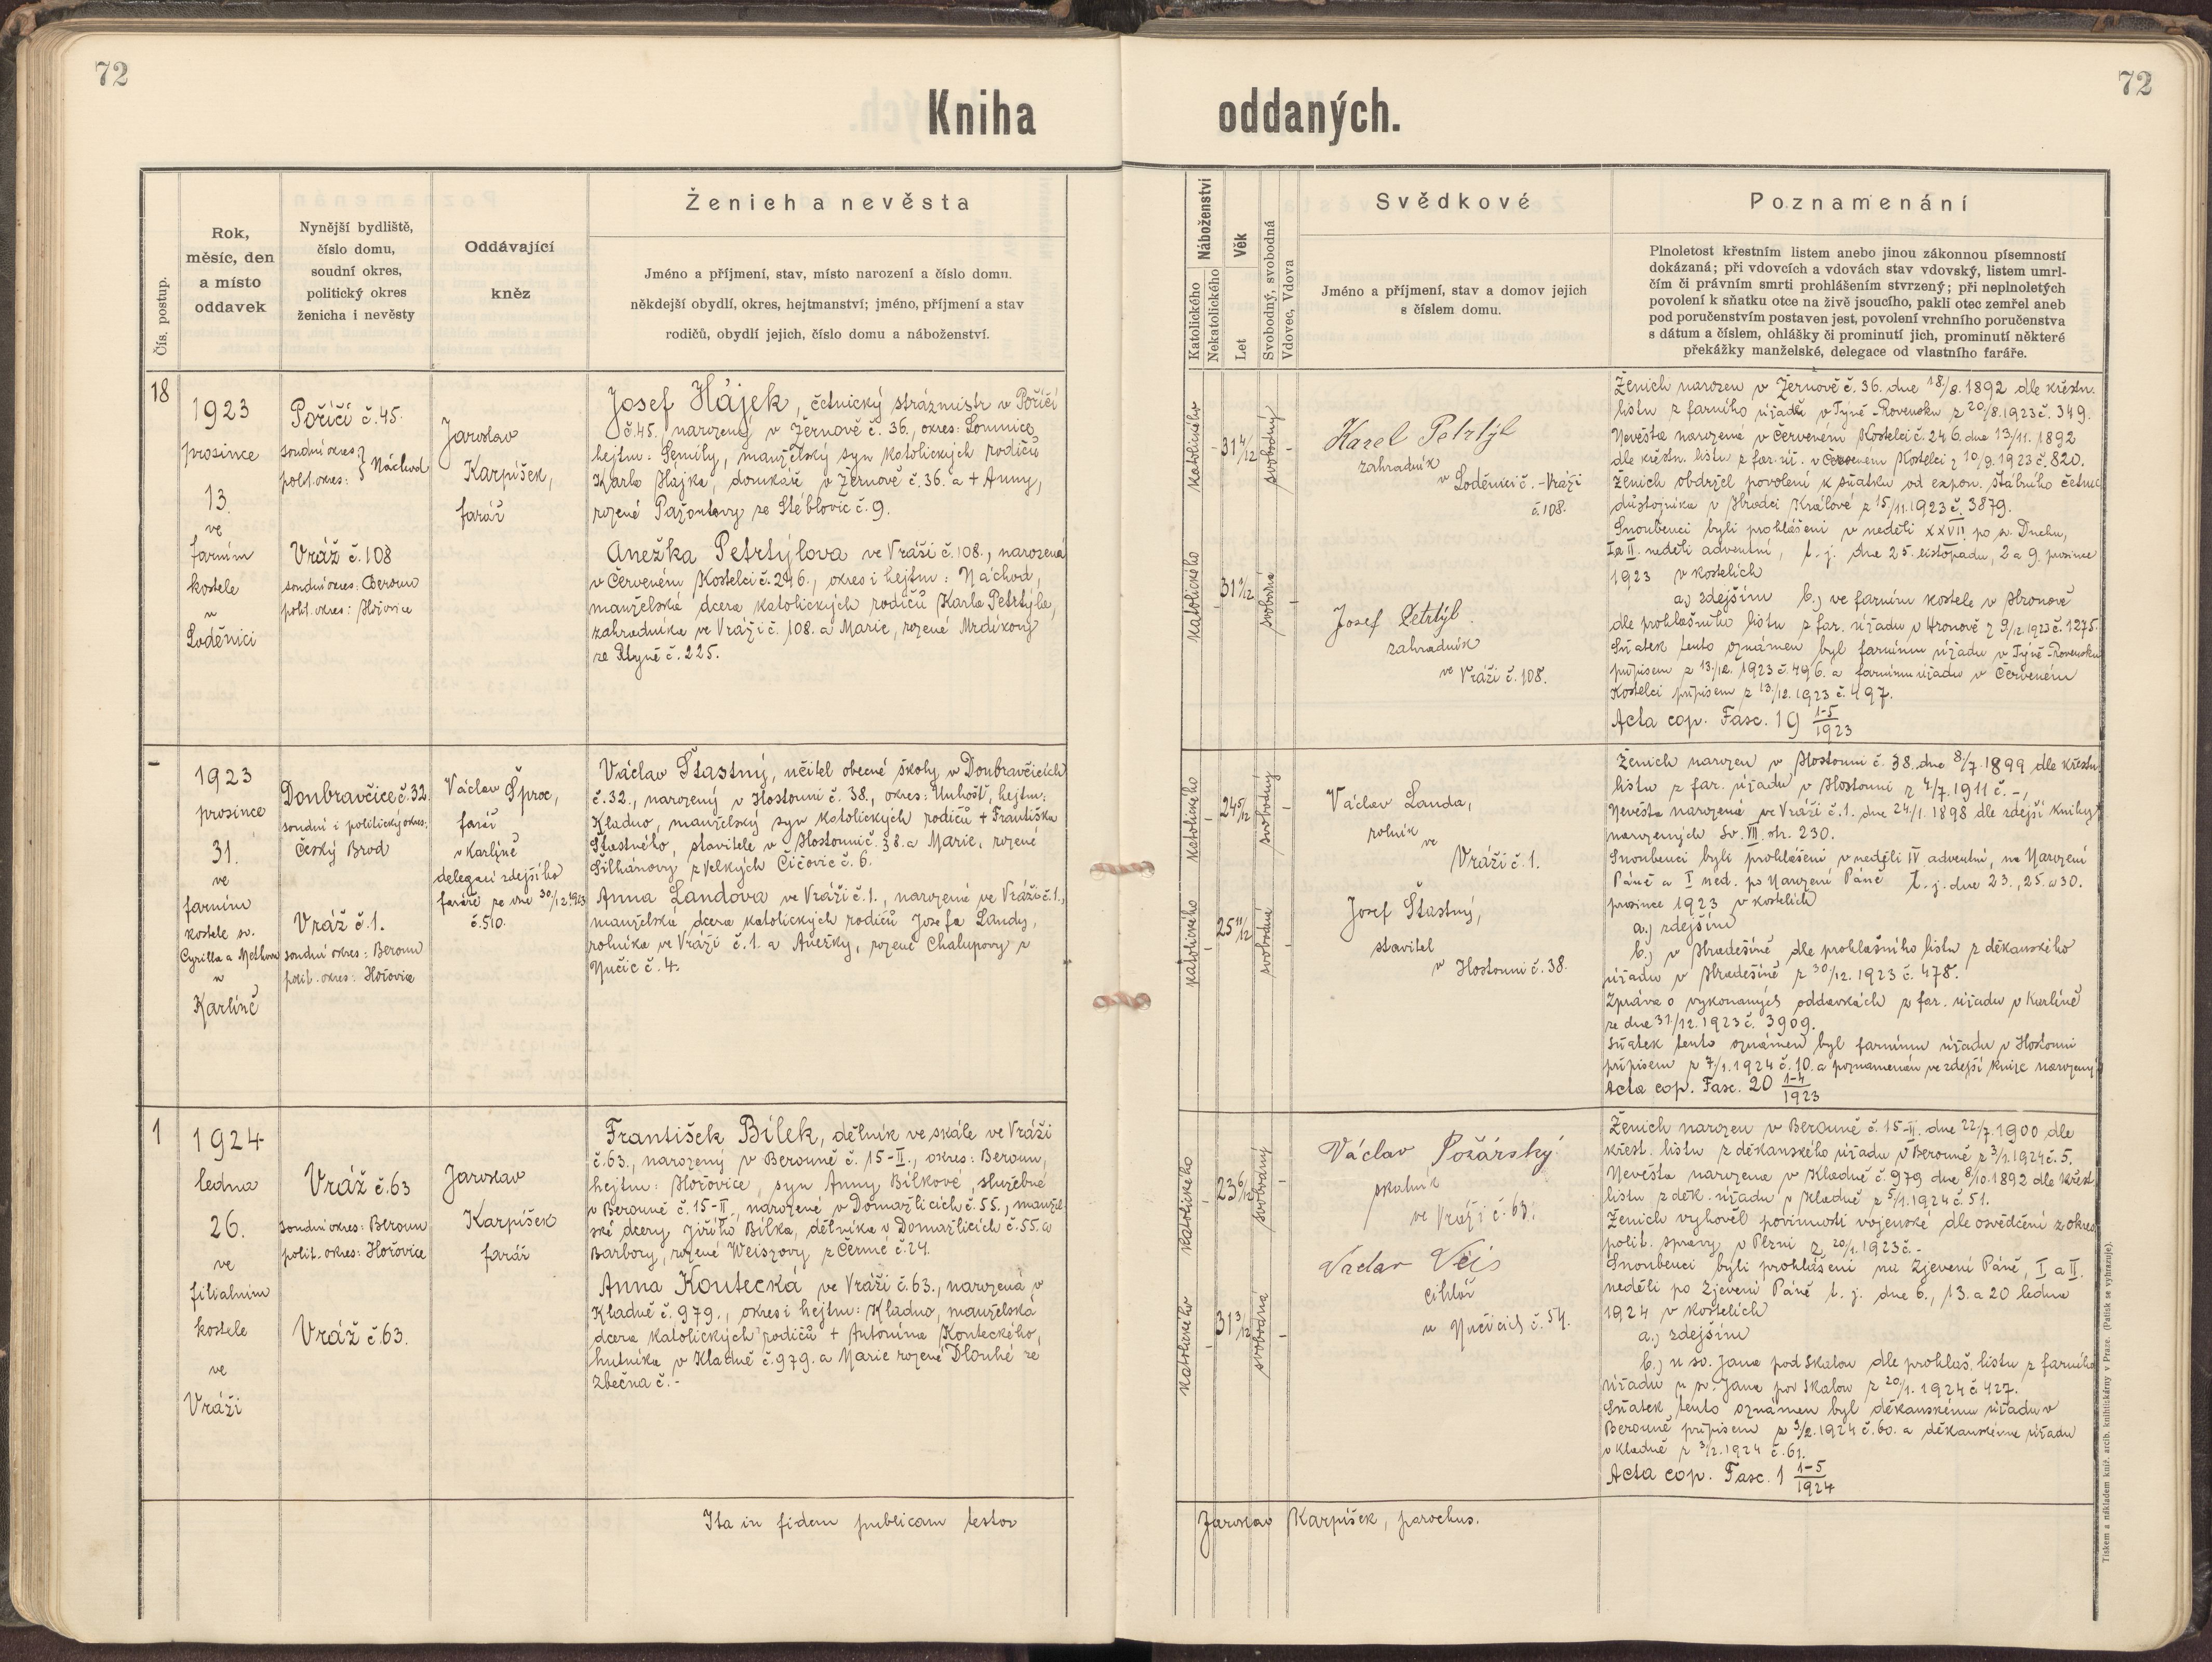 72
72
Kniha oddaných.
Čís. postup.
Rok,
měsíc, den
a místo
oddavek
Nynější bydliště,
číslo domu,
soudní okres,
politický okres
ženicha i nevěsty
Oddávající
kněz
Ženich a nevěsta
Jméno a příjmení, stav, místo narození a číslo domu.
někdejší obydlí, okres, hejtmanství; jméno, příjmení a stav
rodičů, obydlí jejich, číslo domu a náboženství.
Náboženství
Katolického
Nekatolického
Věk
Let
Svobodný, svobodná
Vdovec, Vdova
Svědkové
Jméno a příjmení, stav a domov jejich
s číslem domu.
Poznamenání
Plnoletost křestním listem anebo jinou zákonnou písemností
dokázaná; při vdovcích a vdovách stav vdovský, listem umrl-
čím či právním smrti prohlášením stvrzený; při neplnoletých
povolení k sňatku otce na živě jsoucího, pakli otec zemřel aneb
pod poručenstvím postaven jest, povolení vrchního poručenstva
s dátum a číslem, ohlášky či prominutí jich, prominutí některé
překážky manželské, delegace od vlastního faráře.
18
1923
prosince
13.
ve
farním
kostele
v
Loděnici
Poříčí č. 45.
soudní okres:
polit. okres: } Náchod
Vráž č. 108
soudní okres: Beroun
polit. okres: Hořovice
Jaroslav
Karpíšek,
farář
Josef Hájek, četnický strážmistr v Poříčí
č. 45. narozený v Žernově č. 36., okres: Lomnice,
hejtm: Semily, manželský syn katolických rodičů
Karla Hájka, domkáře v Žernově č. 36. a + Anny,
rozené Pažoutovy ze Stéblovic č. 9.
Anežka Petrtýlova ve Vráži č. 108., narozená
v Červeném Kostelci č. 246., okres i hejtm: Náchod,
manželská dcera katolických rodičů Karla Petrtýla,
zahradníka ve Vráži č. 108. a Marie, rozené Mrdíkovy
ze Rtyně č. 225.
katolického
31 4/12
svobodný
katolického
svobodná
Karel Petrtýl
zahradník
v Loděnici č. - Vráži
č. 108.
Josef Petrtýl.
zahradník
ve Vráži č. 108.
Ženich narozen v Žernově č. 36. dne 18/8. 1892 dle křestn.
listu z farního úřadu v Týně-Rovensku z 20/8. 1923 č. 349.
Nevěsta narozená v Červeném Kostelci č. 246. dne 13/11. 1892
dle křestn. listu z far. úř. v Červeném Kostelci z 10/9. 1923 č. 820.
Ženich obdržel povolení k sňatku od expon. štábního četnic.
důstojníka v Hradci Králové z 15/11. 1923 č. 3879.
Snoubenci byli prohlášeni v neděli XXVII po sv. Duchu,
I a II. neděli adventní, t. j. dne 25. listopadu, 2 a 9. prosince
1923 v kostelích
a.) zdejším b.) ve farním kostele v Hronově
dle prohlašního listu z far. úřadu v Hronově z 9/12. 1923 č. 1275.
Sňatek tento oznámen byl farnímu úřadu v Týně-Rovensku
přípisem z 13./12. 1923 č. 496. a farnímu úřadu v Červeném
Kostelci přípisem z 13./12. 1923 č. 497.
Acta cop. Fasc. 19 1-5/1923
-
1923
prosince
31.
ve
farním
kostele sv.
Cyrilla a Methoda
v
Karlíně
Doubravčice č. 32.
soudní i politický okres:
Český Brod
Vráž č. 1.
soudní okres: Beroun
polit. okres: Hořovice
Václav Šproc,
farář
v Karlíně
delegací zdejšího
faráře ze dne 30/12. 1923
č. 510.
Václav Šťastný, učitel obecné školy v Doubravčicích
č. 32., narozený v Hostouni č. 38., okres: Unhošť, hejtm:
Kladno, manželský syn katolických rodičů + Františka
Šťastného, stavitele v Hostouni č. 38. a Marie, rozené
Šilhánovy z Velkých Čičovic č. 6.
Anna Landova ve Vráži č. 1., narozená ve Vráži č. 1.,
manželská dcera katolických rodičů Josefa Landy,
rolníka ve Vráži č. 1. a Anežky, rozené Chalupovy z
Nučic č. 4.
katolického
24 5/12
svobodný
katolického
25 11/12
svobodná
Václav Landa,
rolník
ve
Vráži č. 1.
Josef Šťastný,
stavitel
v Hostouni č. 38.
Ženich narozen v Hostouni č. 38. dne 8/7. 1899 dle křestn.
listu z far. úřadu v Hostouni z 4/7. 1911 č. -,
Nevěsta narozená ve Vráži č. 1. dne 24/1. 1898 dle zdejší knihy
narozených Sv. VII. str. 230.
Snoubenci byli prohlášeni v neděli IV adventní, na Narození
Páně a I ned. po Narození Páně t. j. dne 23., 25. a 30.
prosince 1923 v kostelích
a.) zdejším
b.) v Hradešíně dle prohlašního listu z děkanského
úřadu v Hradešíně z 30./12. 1923 č. 478.
Zpráva o vykonaných oddavkách z far. úřadu v Karlíně
ze dne 31./12. 1923 č. 3909.
Sňatek tento oznámen byl farnímu úřadu v Hostouni
přípisem z 7/1. 1924 č. 10. a poznamenán ve zdejší knize narozený
Acta cop. Fasc. 20 1-4/1923
1
1924
ledna
26.
ve
filialním
kostele
ve
Vráži
Vráž č. 63
soudní okres: Beroun
polit. okres: Hořovice
Vráž č. 63.
Jaroslav
Karpíšek
farář
František Bílek, dělník ve skále ve Vráži
č. 63., narozený v Berouně č. 15-II., okres: Beroun,
hejtm: Hořovice, syn Anny Bílkové, služebné
v Berouně č. 15-II., narozené v Domažlicích č. 55., manžel-
ské dcery Jiřího Bílka, dělníka v Domažlicích č. 55. a
Barbory, rozené Weiszovy z Černé č. 24.
Anna Koutecká ve Vráži č. 63., narozená v
Kladně č. 979., okres i hejtm: Kladno, manželská
dcera katolických rodičů + Antonína Kouteckého,
hutníka v Kladně č. 979. a Marie rozené Dlouhé ze
Zbečna č. -
katolického
23 6/12
svobodný
katolického
31 3/12
svobodná
Václav Požárský
skalník
ve Vráži č. 63.
Václav Veis
cihlář
v Nučicích č. 54.
Ženich narozen v Berouně č. 15-II. dne 22/7. 1900 dle
křest. listu z děkanského úřadu v Berouně z 3/1. 1924 č. 5.
Nevěsta narozena v Kladně č. 979 dne 8/10. 1892 dle křest.
listu z děk. úřadu v Kladně z 5/1. 1924 č. 51.
Ženich vyhověl povinnosti vojenské dle osvědčení z okres.
polit. správy v Plzni z 20/1. 1923 č. -
Snoubenci byli prohlášeni na Zjevení Páně, I a II.
neděli po Zjevení Páně t. j. dne 6., 13. a 20 ledna
1924 v kostelích
a.) zdejším
b.) u sv. Jana pod Skalou dle prohlaš. listu z farního
úřadu u sv. Jana pod Skalou z 20/1. 1924 č. 427.
Sňatek tento oznámen byl děkanskému úřadu v
Berouně přípisem z 3/2. 1924 č. 60. a děkanskému úřadu
v Kladně z 3/2. 1924 č. 61.
Acta cop. Fasc. 1 1-5/1924
Ita in fidem publicam testor Jaroslav Karpíšek, parochus.
Tiskem a nákladem kníž. arcib. knihtiskárny v Praze. (Patisk se vyhrazuje).